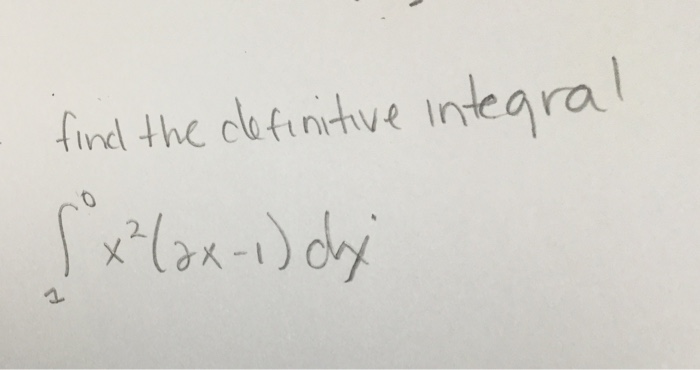 find the definitive integral
∫₁⁰ x²(2x-1) dx